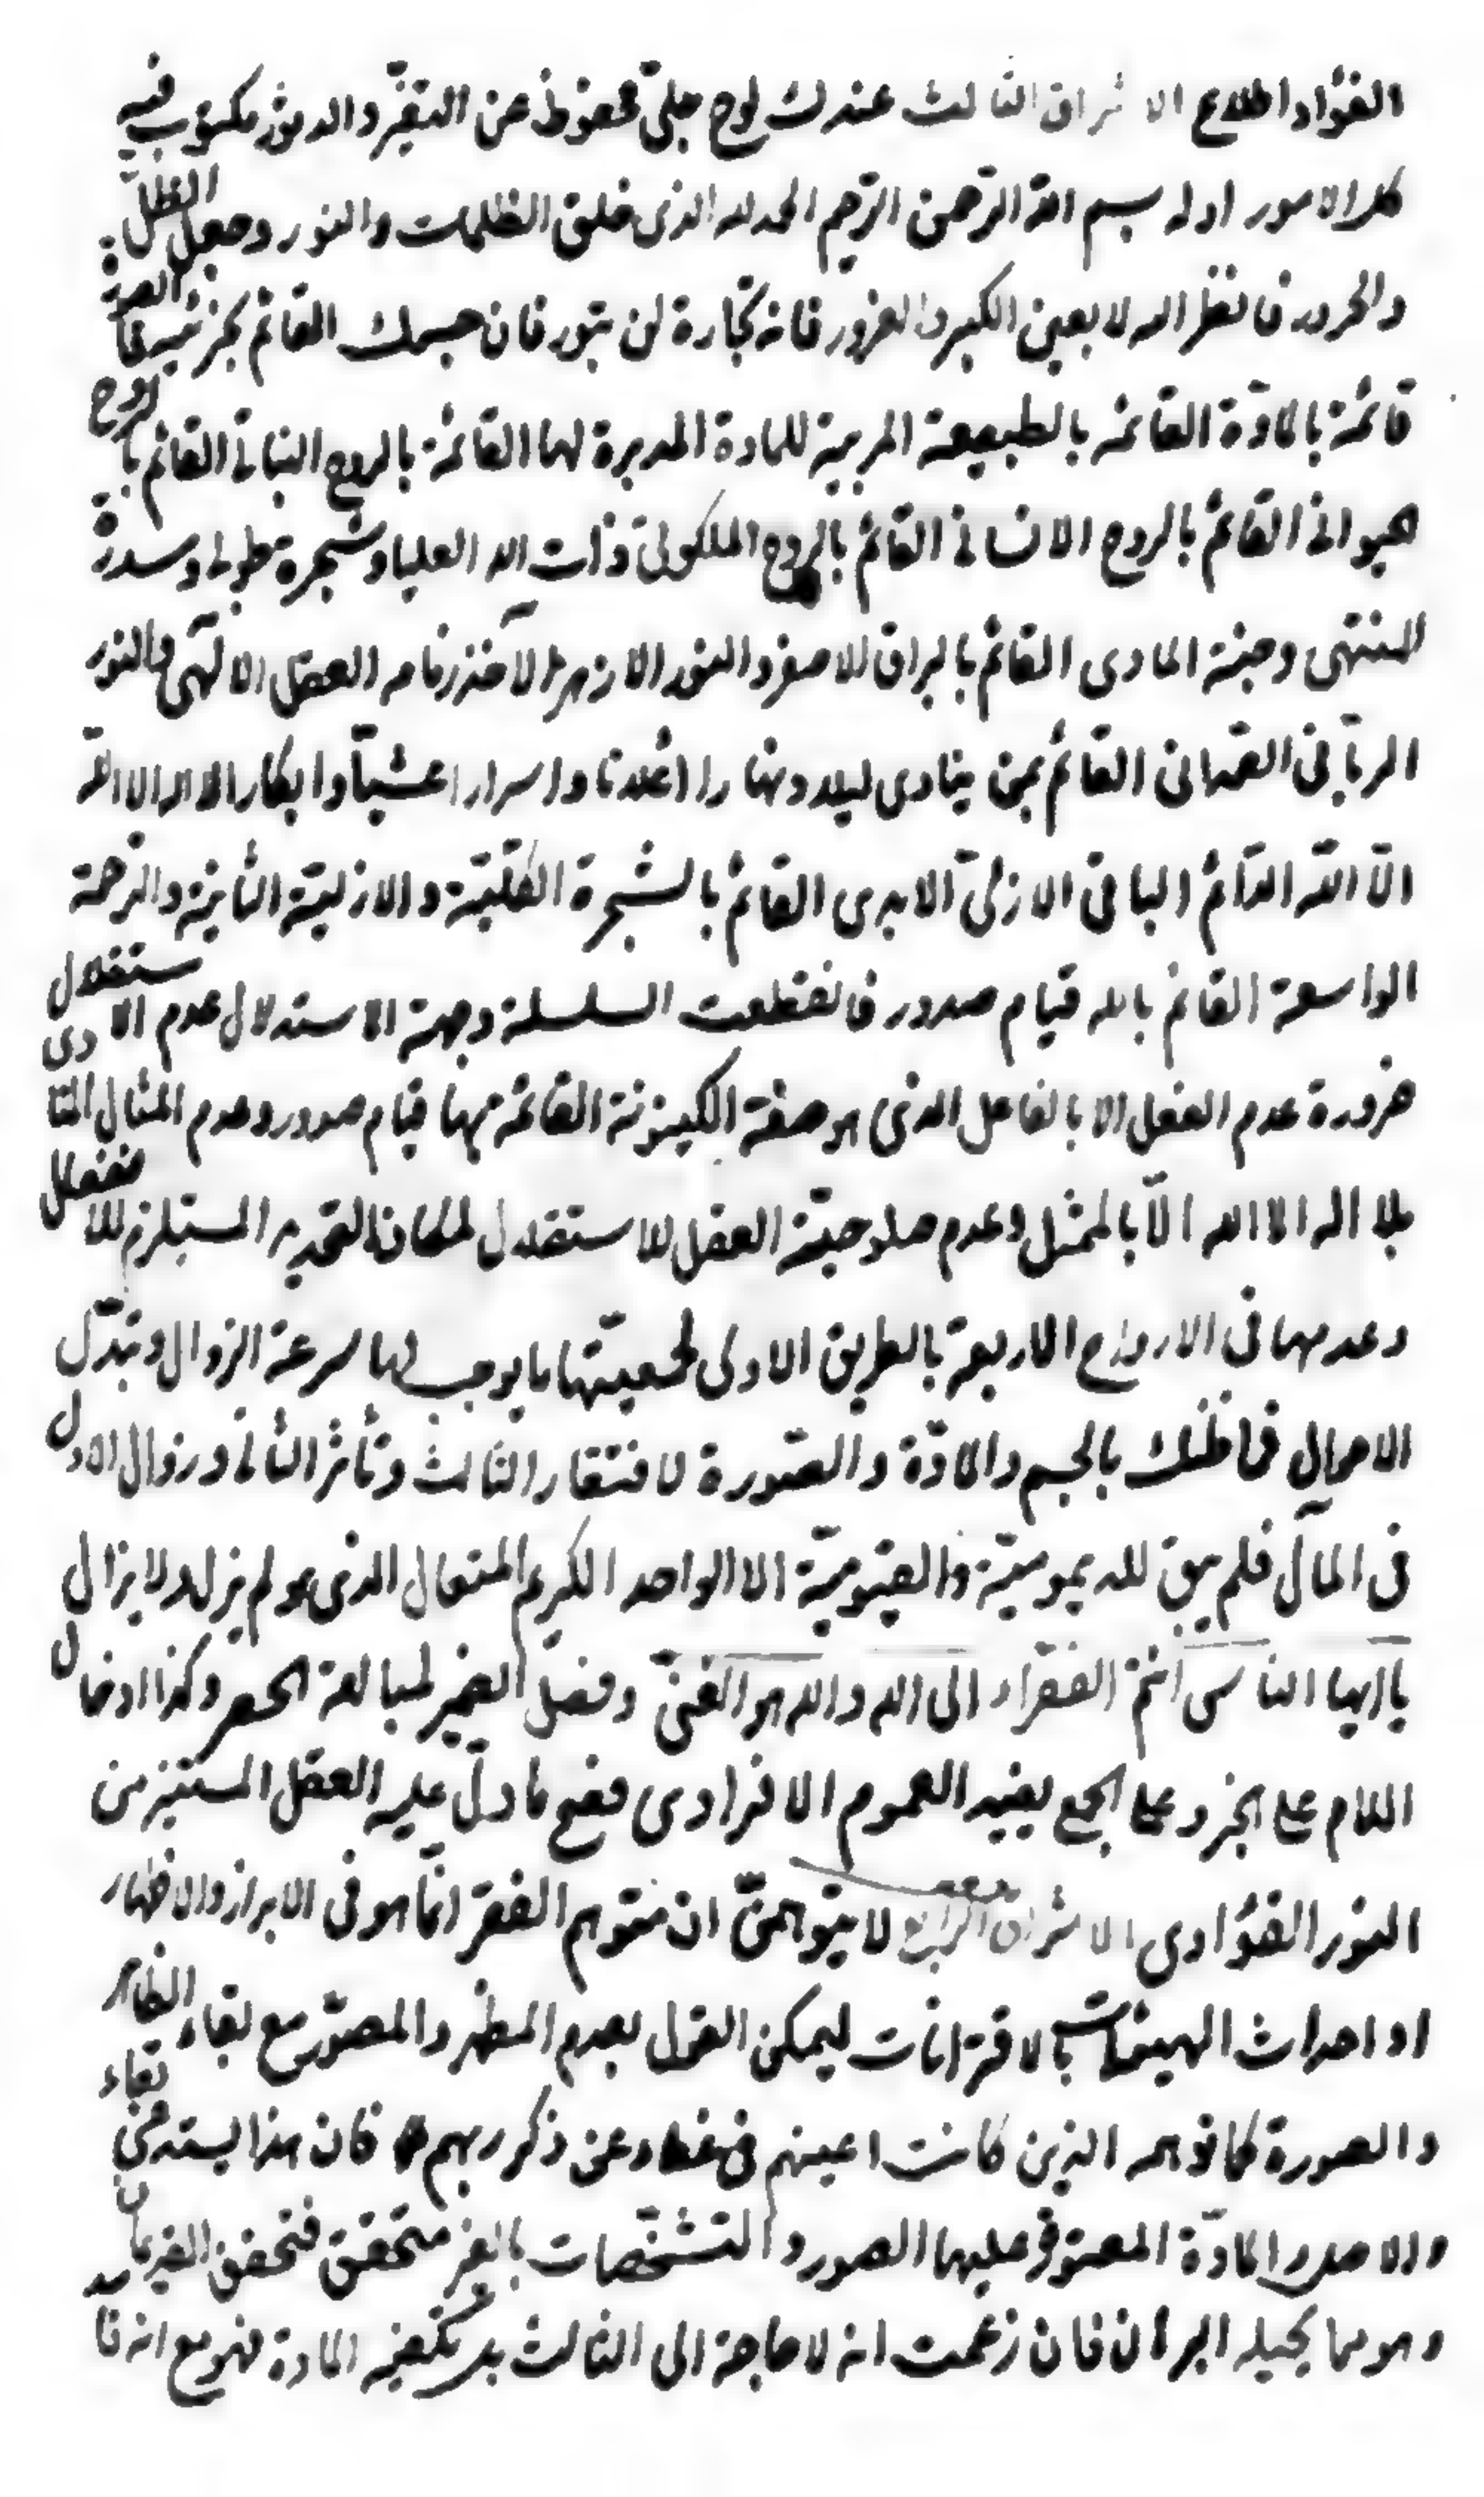 الفؤاد اطلاع الاشراق الثالث عندك لوح جلىّ محفوظ عن التغيّر والدثور مكتوب فيه
كل الامور اوله بسم الله الرّحمن الرّحيم الحمد لله الذى خلق الظلمات والنور وجعل الظلّ
والحرور فانظر اليه لا بعين الكبر والغرور فانه تجارة لن تبور فان جسمك القائم بجزئيه الصورة
قائمة بالمادّة القائمه بالطبيعة المربية للمادة المدبرة لها القائمة بالروح النباتى القائم بالروح
الحيوانى القائم بالروح الانسانى القائم بالروح الملكوتى ذات الله العليا وشجرة طوبى وسدرة
المنتهى وجنة الماوى القائم بالبراق الاصفر والنور الازهر الآخذ زمامه العقل الالهىّ والنور
الربّانى القائم بمن ينادى ليلا ونهارا اعلانا واسرارا عشيّا وابكارا لا اله الا الله
الاّ الله الدّائم الباقى الازلىّ الابدى القائم بالشجرة الكلّيّة والازليّة الثانية والرّحمة
الواسعة القائم بالله قيام صدور فانقطعت السلسلة وجهة الاستدلال عدم الاستقلال
ضرورة عدم الفعل الا بالفاعل الذى هو صفة الكينونة القائمة بها قيام صدور وعدم المثال
بلا اله الا الله الاّ بالممثل وعدم صلوحيّة العقل للاستقلال لمكان التحديد المستلزم للانفعال
وعدمها فى الارواح الاربعة بالطريق الاولى لجمعيّتها ما يوجب لها سرعة الزوال وتبدّل
الاحوال فما ظنك بالجسم والمادّة والصّورة لافتقار الثالث وتأثر الثانى وزوال الاول
فى المآل فلم يبق للديموميّة والقيّوميّة الا الواحد الكريم المتعال الذى هو لم يزل ولا يزال
يا ايها الناس انتم الفقراء الى الله والله هو الغنىّ وفصل الضمير لمبالغة الحصر وكذا ادخال
اللام على الخبر وعلى الجمع يفيد العموم الافرادى فصح ما دلّ عليه العقل المستنير من
النور الفؤادى الاشراق الرابع لا يتوهمنّ ان متوهم الفقر انّما هو فى الابراز والاظهار
او احداث الهيئات بالاقترانات ليمكن القول بعدم المظهر والمصوّر مع بقاء الظاهر
والصورة كما توهمه الذين كانت اعينهم فى غطاء عن ذكر ربهم فان هذا يستدعى بقاء
والاصل والمادّة المعتور عليها الصور والتشخّصات بالغير متحقق فتحقق
وهو مما يحيله البرهان فان زعمت انه لا حاجة الى الثالث بل تكفيه المادة فهو مع انه فاسد